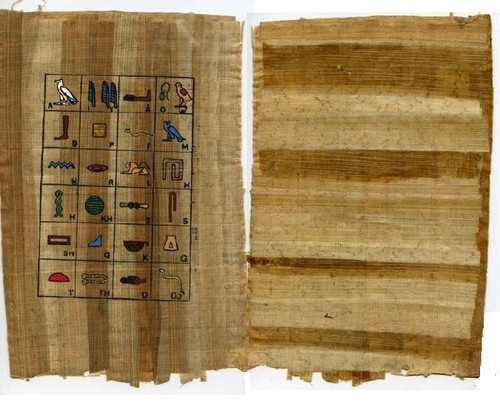 A A O
B P F M
N R L H
H KH Z S
SH Q K G
T TH D DJ